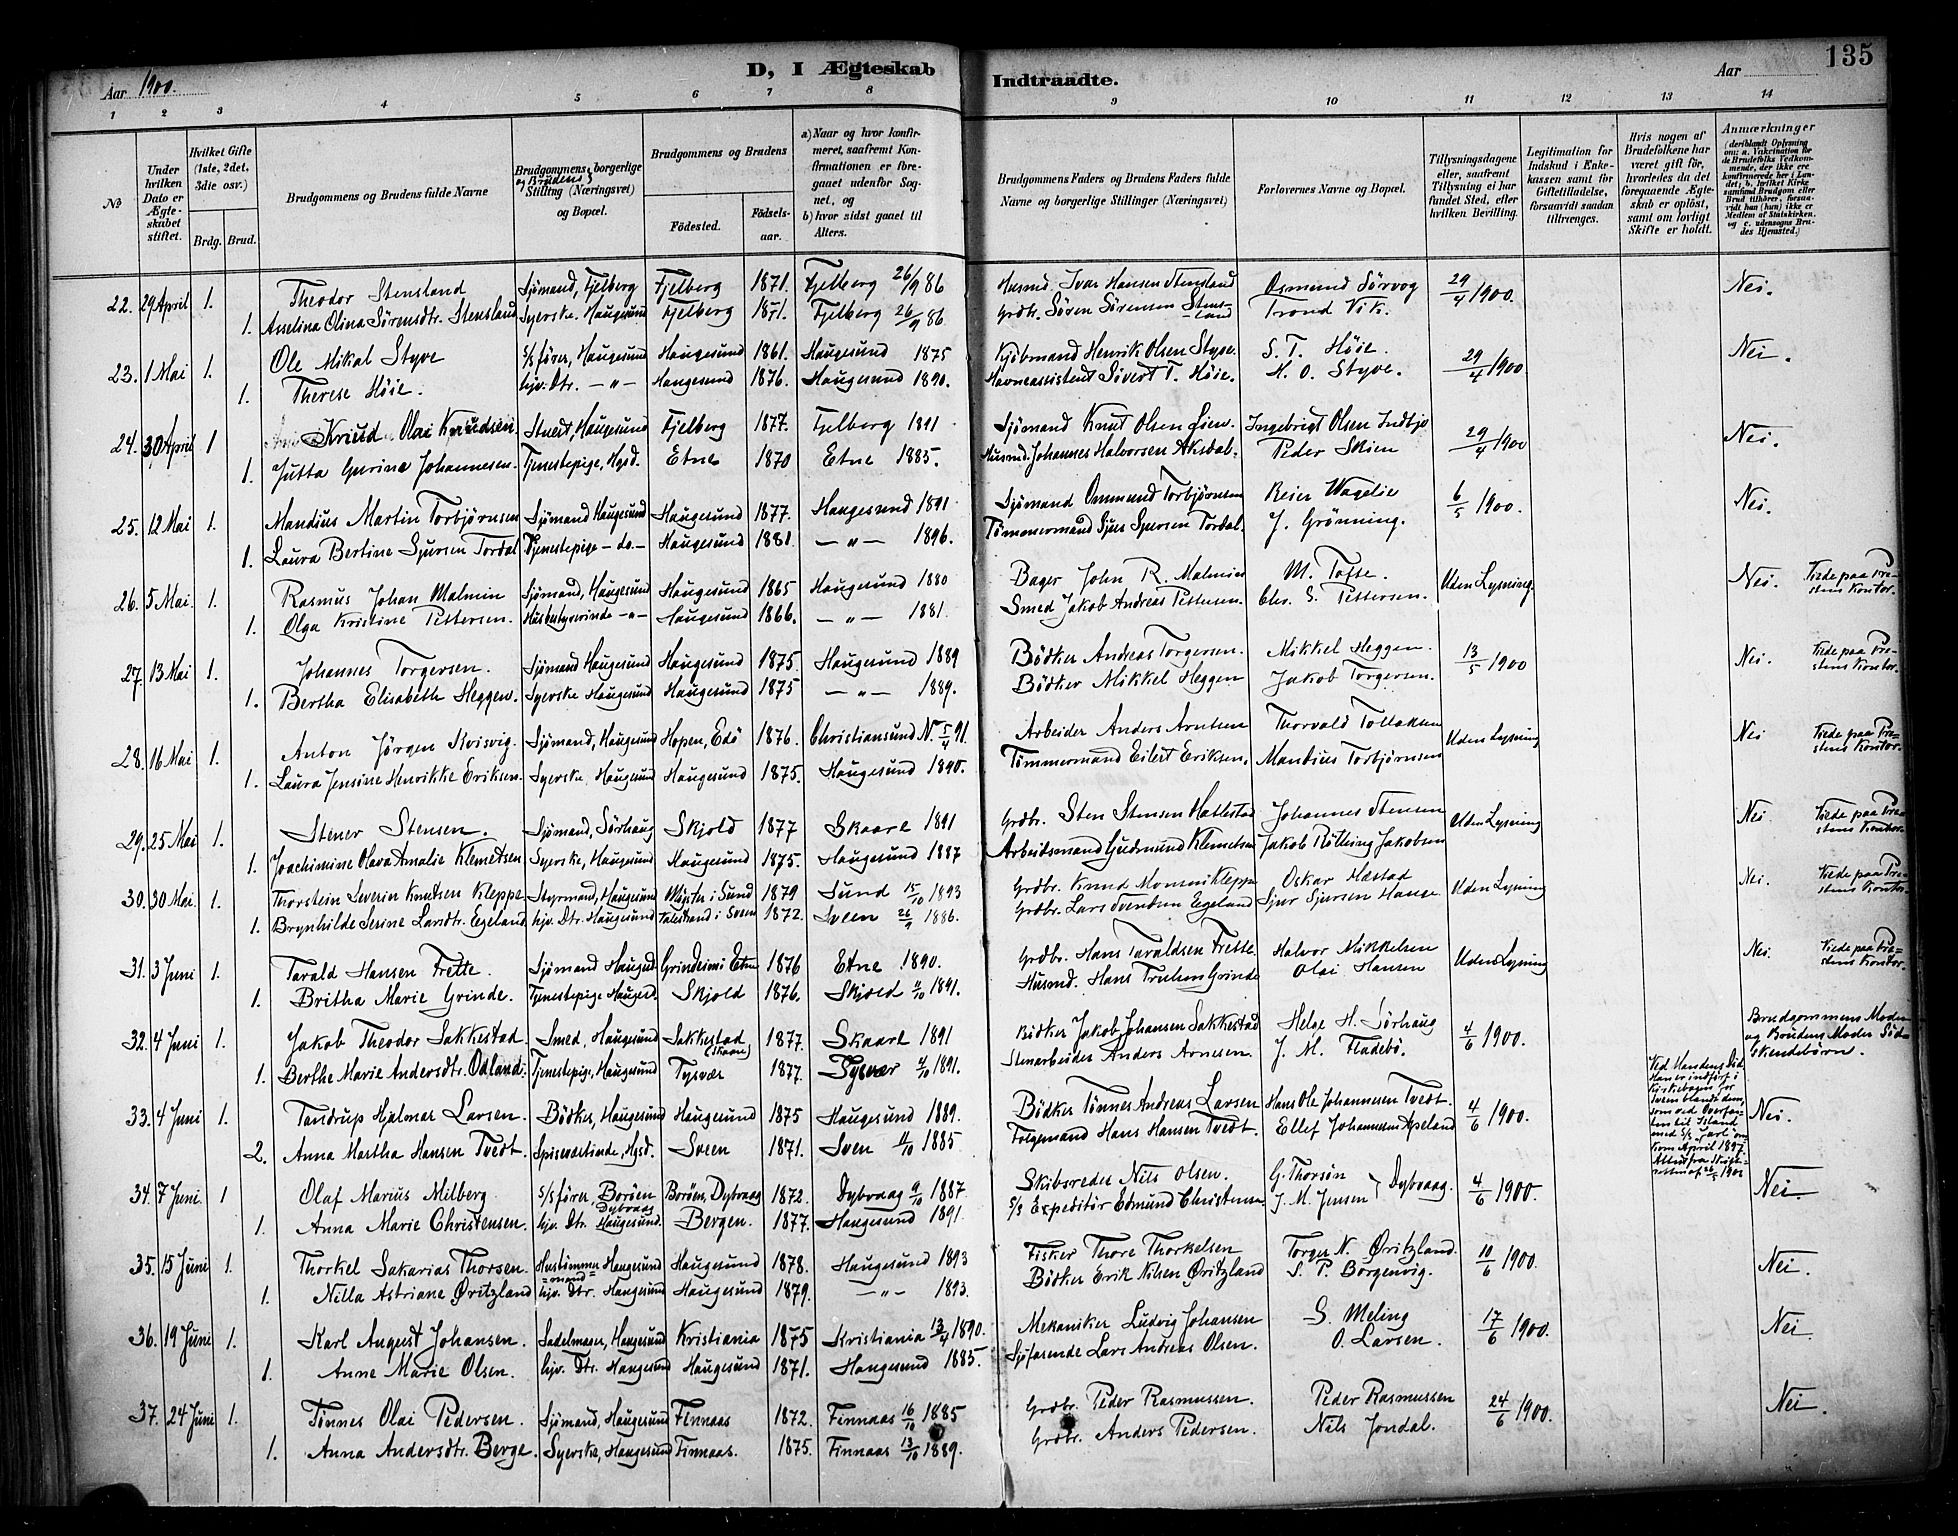 D, I Ægteskab Indtraadte.
135
Aar 1900.
Aar
1 2 3 4 5 6 7 8 9 10 11 12 13 14
No
Under hvilken Dato er Ægteskabet stiftet.
Hvilket Gifte (1ste, 2det, 3die osv.)
Brdg. Brud.
Brudgommens og Brudens fulde Navne
Brudgommens og Brudens borgerlige Stilling (Næringsvei) og Bopæl.
Brudgommens og Brudens
Fødested.
Fødselsaar.
a) Naar og hvor konfirmeret, saafremt Konfirmationen er foregaaet udenfor Sognet, og
b) hvor sidst gaaet til Alters.
Brudgommens Faders og Brudens Faders fulde Navne og borgerlige Stillinger (Næringsvei)
Forlovernes Navne og Bopæl.
Tillysningsdagene eller, saafremt Tillysning ei har fundet Sted, efter hvilken Bevilling.
Legitimation for Indskud i Enkekassen samt for Giftetilladelse, forsaavidt saadan tiltrænges.
Hvis nogen af Brudefolkene har været gift før, hvorledes da det foregaaende Ægteskab er opløst, samt om lovligt Skifte er holdt.
Anmærkninger (deriblandt Oplysning om: a. Vakcination for de Brudefolks Vedkommende, der ikke ere konfirmerede her i Landet; b. hvilket Kirkesamfund Brudgom eller Brud tilhører, forsaavidt han (hun) ikke er Medlem af Statskirken, og c. udensogns Brudes Hjemsted.)
22. 29 April 1. Theodor Stensland Sjömand, Fjelberg Fjelberg 1871. Fjelberg 26/9 86 Husmd. Ivar Hansen Stensland Osmund Sørvog 29/4 1900. Nei.
1. Amelina Olina Sörensdtr. Stensland Syerske, Haugesund Fjelberg 1871. Fjelberg 26/9 86. Grdbr. Sören Sörensen Stensland Trond Vik.
23. 1 Mai 1. Ole Mikal Styve S/S förer, Haugesund Haugesund 1861. Haugesund 1875 Kjöbmand Henrik Olsen Styve. S. T. Høie. 29/4 1900 Nei.
1. Therese Höie. hjv. Dtr. — " — Haugesund 1876. Haugesund 1890. Havneassistent Sivert T. Höie. H. O. Styve.
24. 30 April 1 Knud Olai Knudsen. Stuert, Haugesund Fjelberg 1877. Fjelberg 1891 Sjömand Knut Olsen Lien. Ingebrigt Olsen Indbjo 29/4 1900 Nei.
1. Jutta Gurine Johannesen. Tjenestepige, Hgsd. Etne 1870 Etne 1885. Husmd. Johannes Halvorsen Aksdal. Peder Skien
25. 12 Mai 1. Mandius Martin Torbjørnsen Sjömand Haugesund Haugesund 1877. Haugesund 1891 Sjömand Ommund Torbjörnsen Reier Vagelie 6/5 1900. Nei.
1. Laura Bertine Sjursen Tordal Tjenestepige — do — Haugesund 1881. — " — 1896. Tömmermand Sjur Sjursen Tordal. J. Grönning.
26. 5 Mai. 1. Rasmus Johan Malmin Sjömand, Haugesund Haugesund 1865 Haugesund 1880 Bager John R. Malmin M. Tofte. Uden Lysning. Nei. Viede paa Præstens Kontor.
1. Olga Kristine Pettersen. Husbestyrerinde — " — Haugesund 1866. — " — 1881. Smed Jakob Andreas Pettersen. Chr. S. Pettersen.
27. 13 Mai 1. Johannes Torgersen. Sjömand Haugesund Haugesund 1875. Haugesund 1889 Bödker Andreas Torgersen. Mikkel Heggen. 13/5 1900 Nei. Viede paa Præstens Kontor.
1. Bertha Elisabeth Heggen. Syerske Haugesund Haugesund 1875 — " — 1889. Bödker Mikkel Heggen Jakob Torgersen.
28. 16 Mai 1. Anton Jörgen Kvisvig. Sjömand, Haugesund Hopen, Edö 1876. Christiansund N. 5/4 91. Arbeider Anders Arntsen Thorvald Tollaksen Uden Lysning Nei Viede paa Præstens Kontor.
1. Laura Jensine Henrikke Eriksen. Syerske, Haugesund Haugesund 1875. Haugesund 1890. Tömmermand Eilert Eriksen. Mandius Torbjörnsen
29. 25 Mai 1. Stener Stensen. Sjömand, Sörhaug Skjold 1877 Skaare 1891 Grdbr. Sten Stensen Hatlestad Johannes Stensen Uden Lysning Nei Viede paa Præstens Kontor.
1. Joachimine Olava Amalie Klemetsen Syerske, Haugesund Haugesund 1875. Haugesund 1887 Arbeidsmand Gudmund Klemetsen Jakob Rötting Jakobsen
30. 30 Mai. 1. Thorstein Severin Knutsen Kleppe Styrmand, Haugesund i Sund 1879 Sund 15/10 1893 Grdbr. Knud Kleppe Oskar Hæstad Uden Lysning Nei. Viede paa Præstens Kontor.
1. Brynhilde Serine Larsdtr. Egeland hjv. Dtr. Haugesund Valestrand i Sveen 1872. Sveen 26/9 1886. Grdbr. Lars Svendsen Egeland Sjur Sjursen Hauge
31. 3 Juni 1. Tarald Hansen Frette. Sjömand Haugsd Grindeim i Etne 1876 Etne 1890. Grdbr. Hans Taraldsen Frette Halvor Mikkelsen Uden Lysning Nei. Viede paa Præstens Kontor.
1. Britha Marie Grinde. Tjenestepige Haugesd. Skjold 1876. Skjold 11/10 1891. Husmd. Hans Trulsen Grinde Olai Hansen
32. 4 Juni 1. Jakob Theodor Sakkestad Smed, Haugesund Sakkestad (Skaare) 1877. Skaare 1891 Bödker Jakob Johansen Sakkestad Helge H. Sörhaug 4/6 1900. Brudgommens Moder og Brudens Moder Södskendebörn.
1. Berthe Marie Andersdtr. Odland. Tjenestepige, Haugesund Tysvær 1877. Tysvær 4/10 1891. Stenarbeider Anders Arnesen. J. M. Fladebö.
33. 4 Juni 1. Tandrup Hjalmar Larsen. Bödker, Haugesund Haugesund 1875 Haugesund 1889. Bödker Tönnes Andreas Larsen Hans Ole Johannesen Tvedt. 4/6 1900. Nei.
2. Anna Martha Hansen Tvedt. Spiseværtinde, Hgsd. Sveen 1871. Sven 11/10 1885 Folgemand Hans Hansen Tvedt. Ellef Johannesen Apeland
34. 7 Juni. 1 Olaf Marius Milberg S/S förer Borøen Dybvaag Borøen, Dybvaag 1872. Dybvaag 9/10 1887. Skibsreder Nils Olsen. G. Thorsön 4/6 1900. Nei.
1. Anna Marie Christensen. hjv. Dtr. Haugesund. Bergen. 1877. Haugesund 1891. S/S Expeditör Edmund Christensen. J. M. Jensen } Dybvaag.
35. 15 Juni 1. Thorkel Sakarias Thorsen. Hustömmermand Haugesund Haugesund 1878. Haugesund 1893 Fisker Thore Thorkelsen Torger N. Öritzland. 10/6 1900. Nei.
1. Nilla Astriane Öritzland hjv. Dtr. Haugesund Haugesund 1879. — " — 1893. Bödker Erik Nilsen Öritzland S. P. Borgenvig.
36. 19 Juni 1. Karl August Johansen. Sadelmager, Haugesund Kristiania 1875 Kristiania 13/4 1890. Mekaniker Ludvig Johansen S. Meling 17/6 1900. Nei
1. Anne Marie Olsen. hjv. Dtr. Haugesund Haugesund 1871. Haugesund 1885. Sjöfarende Lars Andreas Olsen. O. Larsen.
37. 24 Juni 1. Tönnes Olai Pedersen. Sjömand, Haugesund Finnaas 1872. Finnaas 16/10 1885 Grdbr. Peder Rasmussen. Peder Rasmussen 24/6 1900. Nei.
1. Anna Andersdtr. Berge. Syerske, Haugesund Finnaas. 1875. Finnaas 13/10 1889. Grdbr. Anders Pedersen. Nils Jondal.